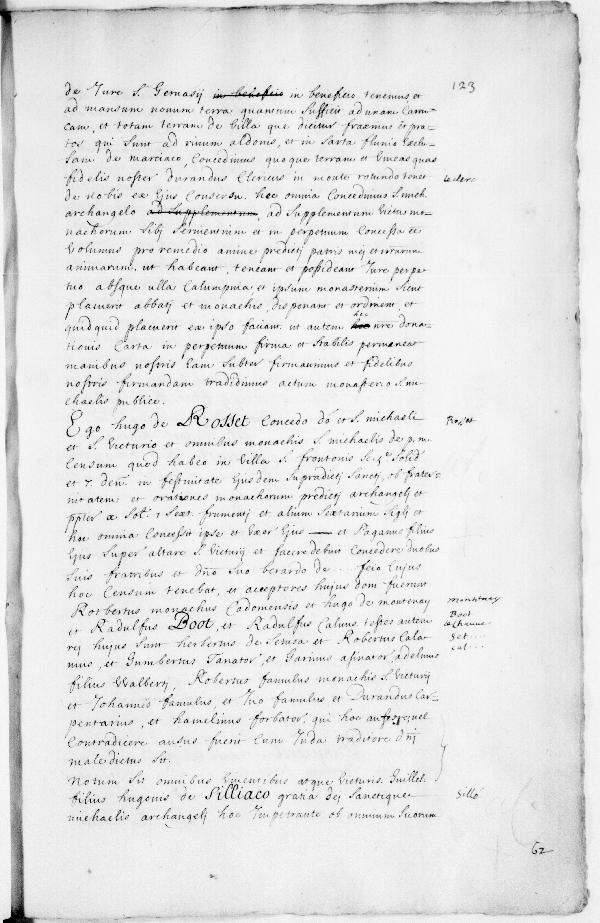 123
de Jure S. Gervasij in beneficio in beneficio tenemus et
ad mansum nonum terra quantum sufficit ad unam Carru-
cam, et totam terram de Villa que dicitur fraxinus et pra-
tos qui sunt ad rivum aldonis, et in sarta fluvio exclu-
sam de marciaco, Concedimus quoque terram et Vineas quas
fidelis noster Durandus Clericus in monte rotundo tenet
le clerc
de nobis ex ejus Consensu. hec omnia Concedimus S. mich.
archangelo ad supplementum, ad supplementum Victus mo-
nachorum sibj servientium et in perpetuum Concessa ee
Volumus pro remedio anime predictj patris mej et nrarum
animarum. ut habeant, teneant et possideant Jure perpe
tuo absque ulla Calumpnia et ipsum monasterium sicut
placuerit abbatj et monachis, disponant et ordinent et
quidquid placuerit ex ipso faciant. ut autem hoc hec nre dona-
tionis Carta in perpetuum firma et stabilis permaneat
manibus nostris Eam subter firmavimus et fidelibus
nostris firmandam tradidimus actum monasterio S. mi-
chaelis publice.
Ego hugo de Rosset Concedo do et S. michaeli
Rosset
et S. Victurio et omnibus monachis S. michaelis de p. m.
Censum quod habeo in Villa S. frontonis Sc. 4or Solid
et 7. den. in festivitate Ejusdem Supradictj Sanctj, ob frater-
nitatem et orationes monachorum predictj archangelj et
ppter x Sol. 1 Sext. frumentj et alium Sextarium Siglj et
hoc omnia Concessit ipse et Uxor Ejus — et Paganus filius
Ejus Super altare S. Victurij et facere debuit Concedere duobus
Suis fratribus et dno Suo berardo de ... feio Cujus
hoc Censum tenebat, et acceptores hujus doni fuerunt
Rotbertus monachus Cadomensis et hugo de montenay
montenay
et Radulfus Boot, et Radulfus Calvus. testes autem
Boot
le Chauve
rej hujus sunt herbertus de Setusa et Robertus Cala-
Set ...
mus, et Gumbertus Tanator, et Garinus asinator, adelmus
Cal ...
filius Walbertj, Robertus famulus monachis S. Victurij
et Johannes famulus, et Ivo famulus et Durandus Car-
pentarius, et hamelinus forbator. qui hoc auferre, vel
Contradicere ausus fuerit Cum Juda traditore dnj
maledictus sit.
Notum Sit omnibus Viventibus atque Victuris. Guillel.
filius hugonis de Silliaco gratia dej Sanctique
Sillé
michaelis archangelj hoc Impetrante ob omnium Suorum
62